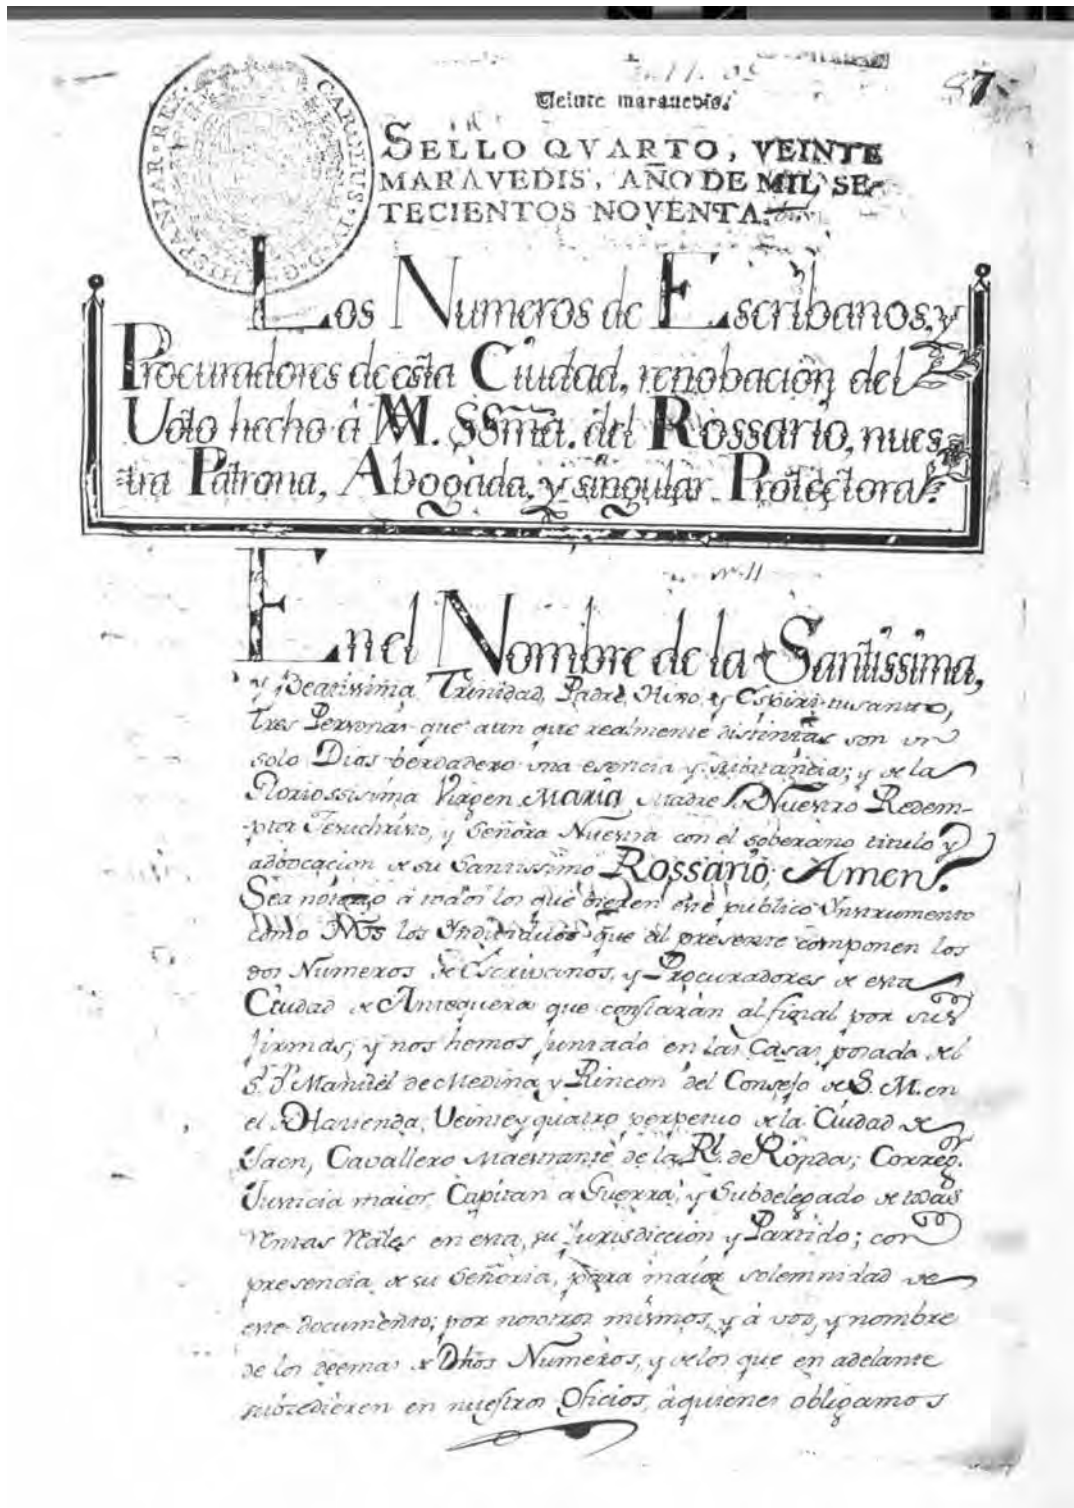 7
Veinte marauedis.
SELLO QVARTO, VEINTE
MARAVEDIS, AÑO DE MIL SE-
TECIENTOS NOVENTA.
CAROLUS IV D G HISPANIAR REX
Los Numeros de Escribanos, y
Procuradores de esta Ciudad, renobación del
Voto hecho â M. SSma. del Rossario, nues
tra Patrona, Abogada, y singular Protectora.
En el Nombre de la Santissima,
y Beatissima Trinidad, Padre, Hixo, y Espiritu santo,
tres Personas que aun que realmente distintas son un
solo Dios berdadero una esencia y sustancia; y de la
Gloriossisima Virgen MARIA, Madre de Nuestro Redem-
ptor Jesuchristo, y Señora Nuestra con el soberano titulo y
adbocacion de su Santissimo Rossario; Amen.
Sea notorio â todos los que bieren este publico Ynstrumento
como Nos los Yndibiduos que al presente componen los
dos Numeros de Escrivanos, y Procuradores de esta
Ciudad de Antequera que constarán al final por sus
firmas; y nos hemos juntado en las Casas posada del
S. Dn. Manuel de Medina, y Rincon del Consejo de S. M. en
el de Hazienda, Veinte y quatro perpetuo de la Ciudad de
Jaen, Cavallero Maestrante de la Rl. de Ronda; Correg.
Justicia maior, Capitan a Guerra, y Subdelegado de todas
Rentas Rales en esta, su Jurisdiccion y Partido; con
presencia de su Señoria, para maior solemnidad de
este documento; por nosotros mismos, y â voz, y nombre
de los deemas de Dhos Numeros, y de los que en adelante
subcedieren en nuestros Oficios, â quienes obligamos